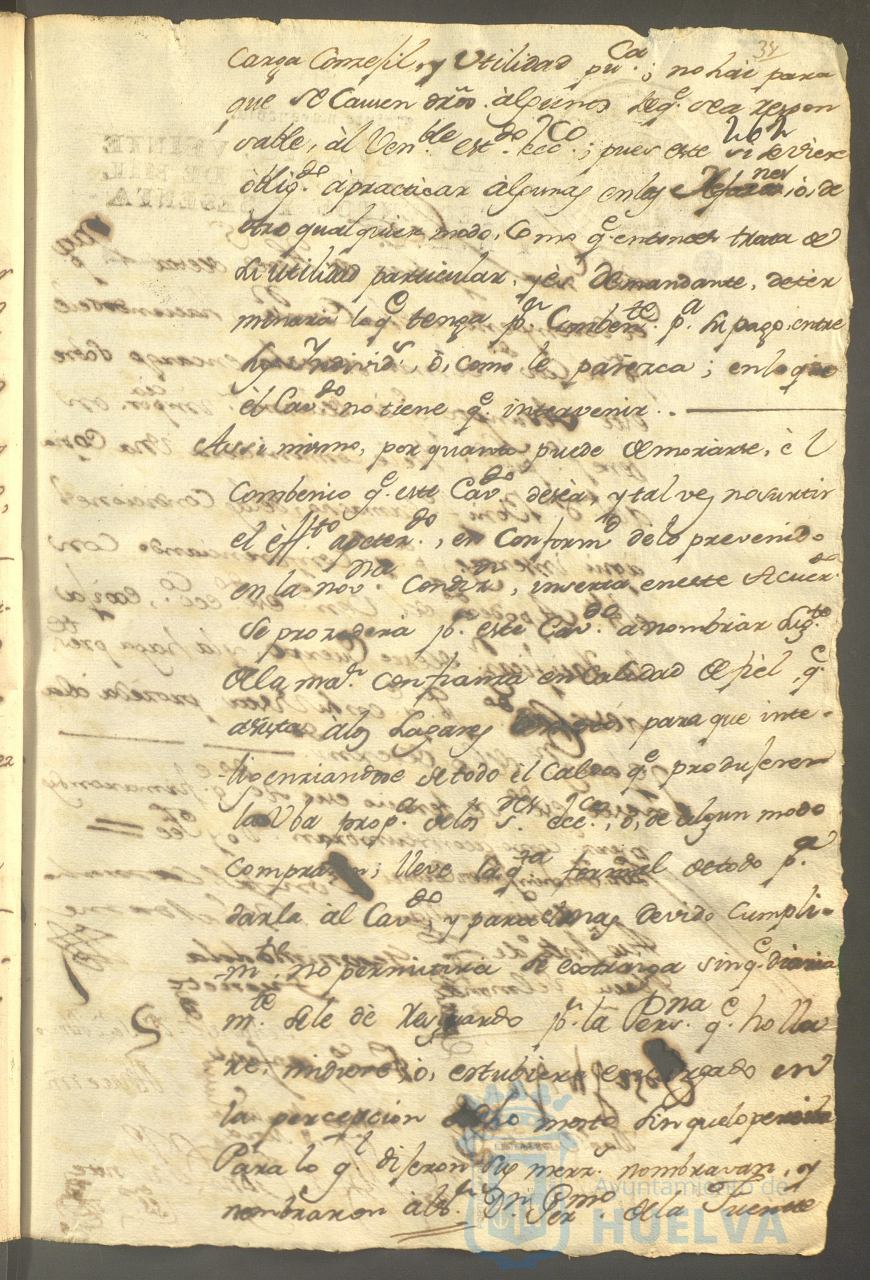 34
carga Conzejil, y Utilidad pu.ca; no hai para
que se Causen dros. àlgunos de q.e sea respon
262
sable, àl Ven.ble est.do ecc.co; pues este si se viere
oblig.do a practicar àlgunas en los ó, de
otro qualquier modo, Como q.e entonces trata de
su utilidad particular, y és demandante, deter
minará lo q.e tenga p.r Comben.te p.a su pago, entre
sus Yndivid.s, ò, como le parezca; en lo que
el Cav.do no tiene q.e intervenir.
Assi mismo, por quanto puede demorarse, è l
Combenio q.e este Cav.do deséa, y tal vez no surtir
el èff.to apeter.do, en Conform.d de lo prevenido
en la nov.na Condiz.n, inserta en este Acuer.do
se prozederá p.r este Cav.do a nombrar Sug.to
de la ma.r Confianza en Calidad de fiel q.e
asista à los Lagares para que inte-
lijenziandose de todo el Caldo q.e produseren
la Uba prop.a de los s.res ecc.cos, ò, de algun modo
Compraren; lleve la q.ta formal de todo p.a
darla àl Cav.do, y para su mas devido Cumpli-
m.to no permitirá se extraiga sin q.e diaria
m.te se le dè Resguardo p.r la Pers.na q.e holla
re, midiere, ò, estubiere encargado en
la percepción de dho mosto sin que lo permita
Para lo q.l diseron sus merz.s nombravan, y
nombraron à l s.r D.n de la Fuente
Ayuntamiento de
HUELVA